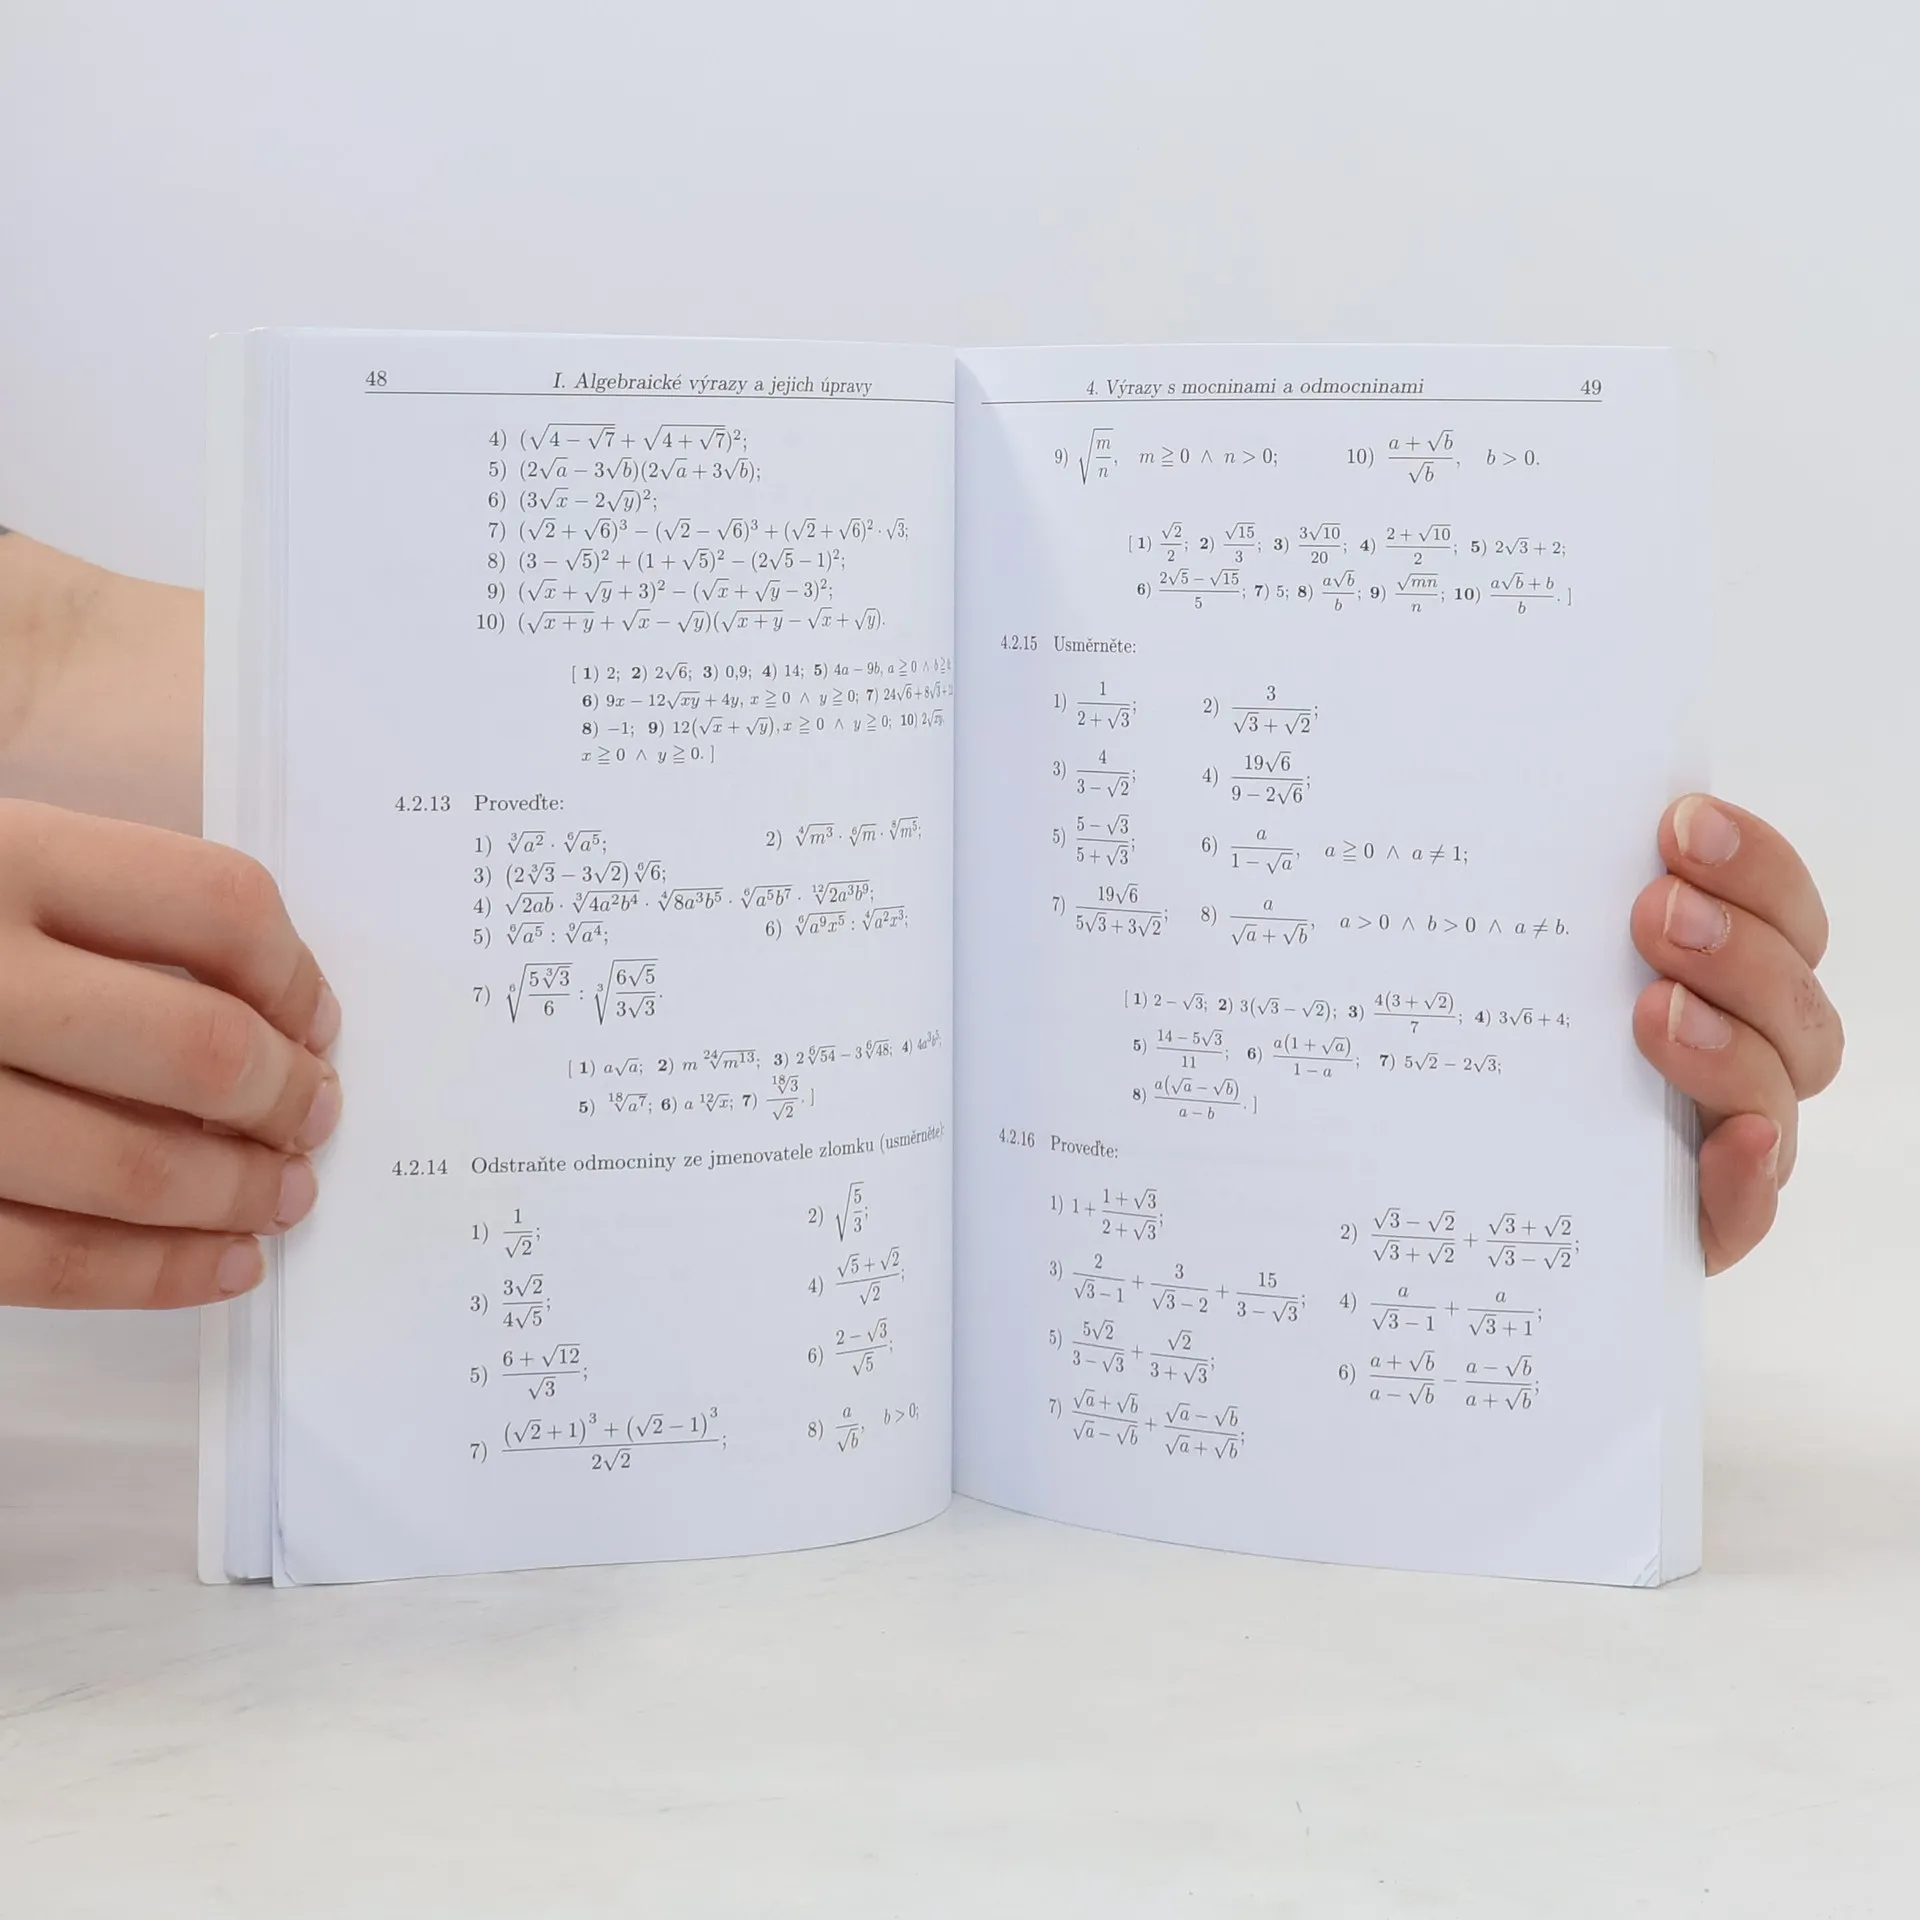 48 I. Algebraické výrazy a jejich úpravy
4) (√(4 − √7) + √(4 + √7))²;
5) (2√a − 3√b)(2√a + 3√b);
6) (3√x − 2√y)²;
7) (√2 + √6)³ − (√2 − √6)³ + (√2 + √6)² · √3;
8) (3 − √5)² + (1 + √5)² − (2√5 − 1)²;
9) (√x + √y + 3)² − (√x + √y − 3)²;
10) (√(x + y) + √x − √y)(√(x + y) − √x + √y).
[ 1) 2; 2) 2√6; 3) 0,9; 4) 14; 5) 4a − 9b, a ≧ 0 ∧ b ≧
6) 9x − 12√(xy) + 4y, x ≧ 0 ∧ y ≧ 0; 7) 24√6 + 8√3 +
8) −1; 9) 12(√x + √y), x ≧ 0 ∧ y ≧ 0; 10) 2√(xy),
x ≧ 0 ∧ y ≧ 0. ]
4.2.13 Proveďte:
1) ∛(a²) · ⁶√(a⁵); 2) ⁴√(m³) · ⁶√m · ⁸√(m⁵);
3) (2∛3 − 3√2) ⁶√6;
4) √(2ab) · ∛(4a²b⁴) · ⁴√(8a³b⁵) · ⁶√(a⁵b⁷) · ¹²√(2a³b⁹);
5) ⁶√(a⁵) : ⁹√(a⁴); 6) ⁶√(a⁹x⁵) : ⁴√(a²x³);
7) ⁶√(5∛3/6) : ∛(6√5/(3√3)).
[ 1) a√a; 2) m ²⁴√(m¹³); 3) 2 ⁶√54 − 3 ⁶√48; 4) 4a³b⁵;
5) ¹⁸√(a⁷); 6) a ¹²√x; 7) ¹⁸√3/√2. ]
4.2.14 Odstraňte odmocniny ze jmenovatele zlomku (usměrněte):
1) 1/√2; 2) √(5/3);
3) 3√2/(4√5); 4) (√5 + √2)/√2;
5) (6 + √12)/√3; 6) (2 − √3)/√5;
7) ((√2 + 1)³ + (√2 − 1)³)/(2√2); 8) a/√b, b > 0;
4. Výrazy s mocninami a odmocninami 49
9) √(m/n), m ≧ 0 ∧ n > 0; 10) (a + √b)/√b, b > 0.
[ 1) √2/2; 2) √15/3; 3) 3√10/20; 4) (2 + √10)/2; 5) 2√3 + 2;
6) (2√5 − √15)/5; 7) 5; 8) a√b/b; 9) √(mn)/n; 10) (a√b + b)/b. ]
4.2.15 Usměrněte:
1) 1/(2 + √3); 2) 3/(√3 + √2);
3) 4/(3 − √2); 4) 19√6/(9 − 2√6);
5) (5 − √3)/(5 + √3); 6) a/(1 − √a), a ≧ 0 ∧ a ≠ 1;
7) 19√6/(5√3 + 3√2); 8) a/(√a + √b), a > 0 ∧ b > 0 ∧ a ≠ b.
[ 1) 2 − √3; 2) 3(√3 − √2); 3) 4(3 + √2)/7; 4) 3√6 + 4;
5) (14 − 5√3)/11; 6) a(1 + √a)/(1 − a); 7) 5√2 − 2√3;
8) a(√a − √b)/(a − b). ]
4.2.16 Proveďte:
1) 1 + (1 + √3)/(2 + √3); 2) (√3 − √2)/(√3 + √2) + (√3 + √2)/(√3 − √2);
3) 2/(√3 − 1) + 3/(√3 − 2) + 15/(3 − √3); 4) a/(√3 − 1) + a/(√3 + 1);
5) 5√2/(3 − √3) + √2/(3 + √3); 6) (a + √b)/(a − √b) − (a − √b)/(a + √b);
7) (√a + √b)/(√a − √b) + (√a − √b)/(√a + √b);